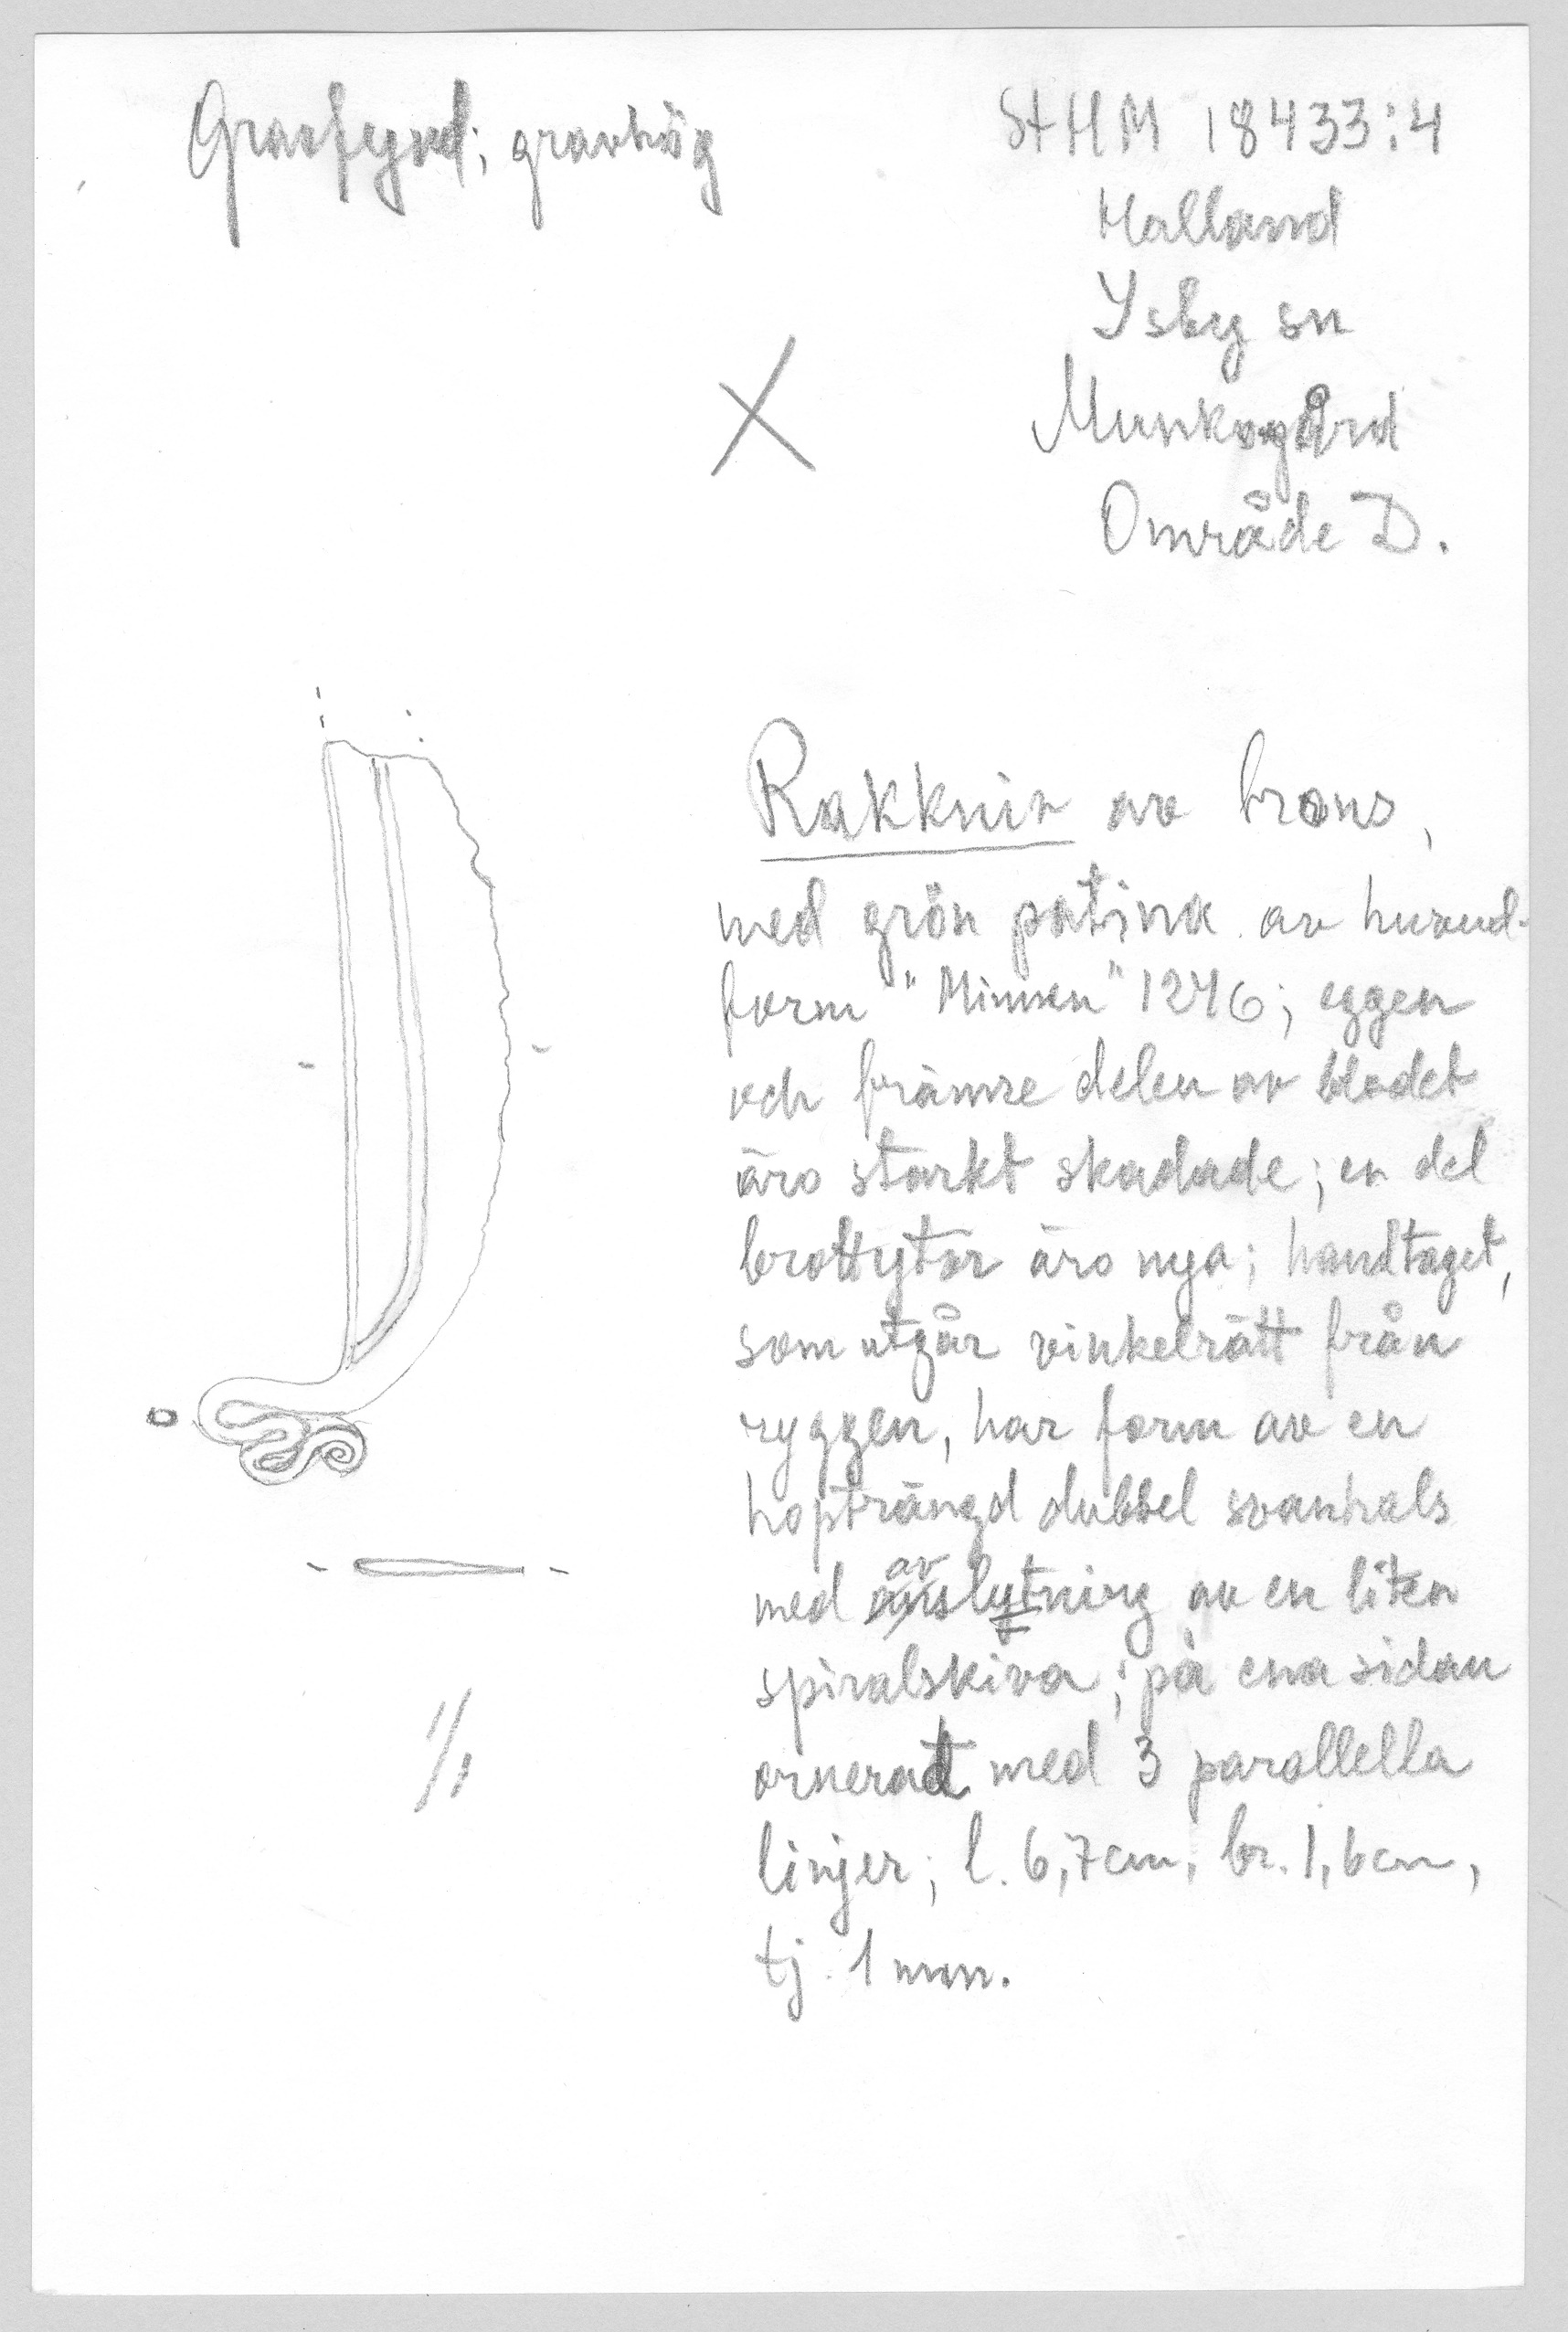 Gravfynd; gravhög
StHM 18433:4
Halland
Ysby sn
Munkagård
Område D.
Rakkniv av brons,
med grön patina av huvud-
form "Minnen" 1276; eggen
och främre delen av bladet
äro starkt skadade; en del
brottytor äro nya; handtaget,
som utgår vinkelrätt från
ryggen, har form av en
hopträngd dubbel svanhals
med avslytning av en liten
spiralskiva; på ena sidan
ornerat med 3 parallella
linjer; l. 6,7cm, br. 1,6cm,
tj. 1 mm.
1/1